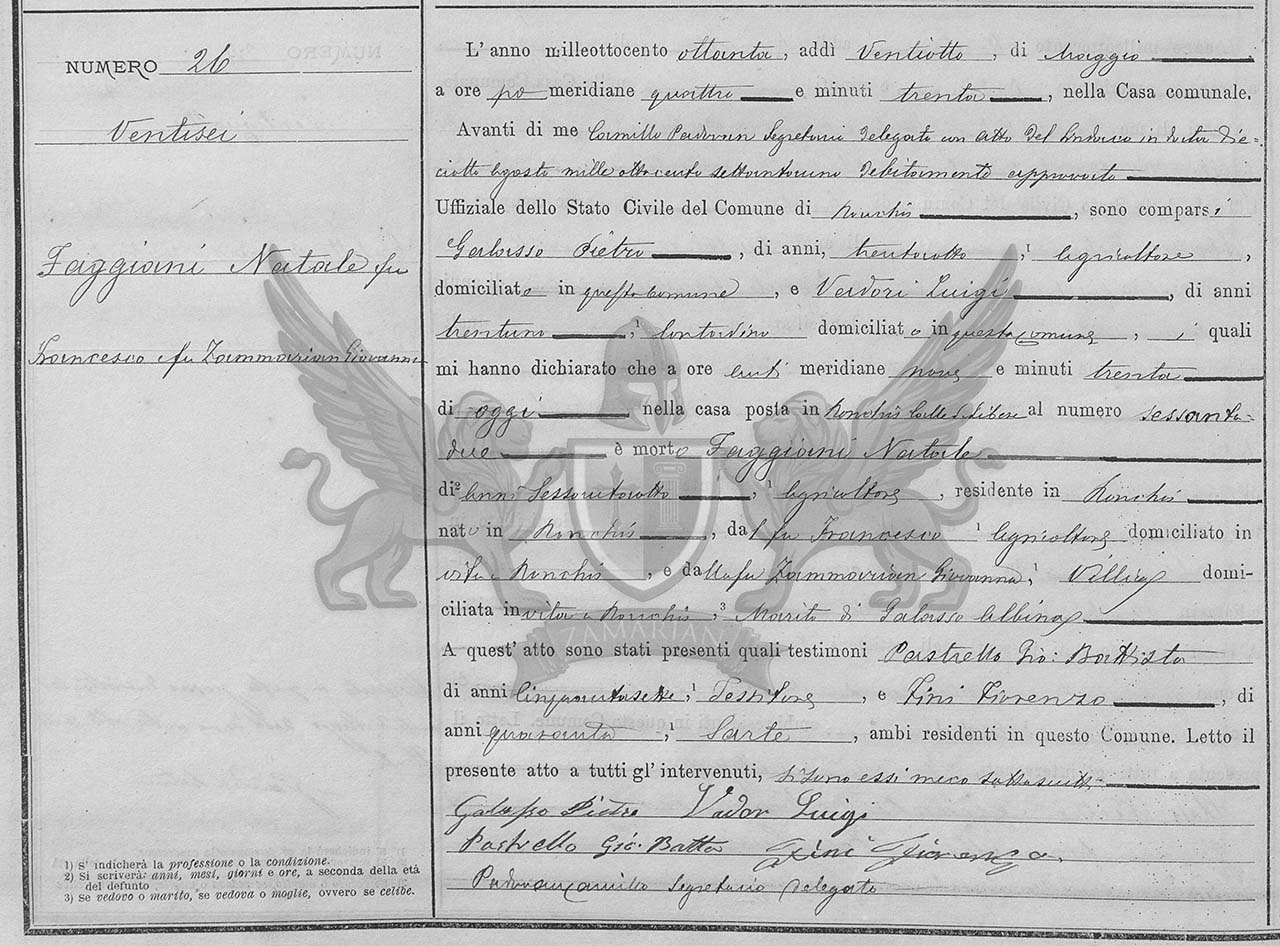 NUMERO 26
Ventisei
Faggiani Natale fu
Francesco e fu Zammarian Giovanna
L'anno milleottocento ottanta, addì Ventiotto, di Maggio
a ore po meridiane quattro e minuti trenta, nella Casa comunale.
Avanti di me Camillo Padovan Segretario delegato con atto del Sindaco in data die=
ciotto Agosto mille ottocento settantauno debitamente approvato
Uffiziale dello Stato Civile del Comune di Ronchis, sono comparsi
Galasso Pietro, di anni, trentaotto, ¹ Agricoltore,
domiciliato in questo comune, e Vadori Luigi, di anni
trentuno, ¹ Contadino domiciliato in questo comune, i quali
mi hanno dichiarato che a ore anti meridiane nove e minuti trenta
di oggi nella casa posta in Ronchis Calle al numero sessanta=
due è morto Faggiani Natale
di² Anni Sessantaotto, ¹ Agricoltore, residente in Ronchis
nato in Ronchis, dal fu Francesco ¹ Agricoltore domiciliato in
vita a Ronchis, e dalla fu Zammarian Giovanna, ¹ Villica domi-
ciliata in vita a Ronchis, ³ Marito di Galasso Albina
A quest' atto sono stati presenti quali testimoni Pastrello Gio: Battista
di anni Cinquantasette, ¹ Tessitore, e Fini Fiorenzo, di
anni quaranta, ¹ Sarte, ambi residenti in questo Comune. Letto il
presente atto a tutti gl' intervenuti, si sono essi meco sottoscritti.
Galasso Pietro Vador Luigi
Pastrello Gio: Batta Fini Fiorenzo
Padovan Camillo Segretario Delegato
1) S' indicherà la professione o la condizione.
2) Si scriverà: anni, mesi, giorni e ore, a seconda della età
del defunto
3) Se vedovo o marito, se vedova o moglie, ovvero se celibe.
ZAMARIAN